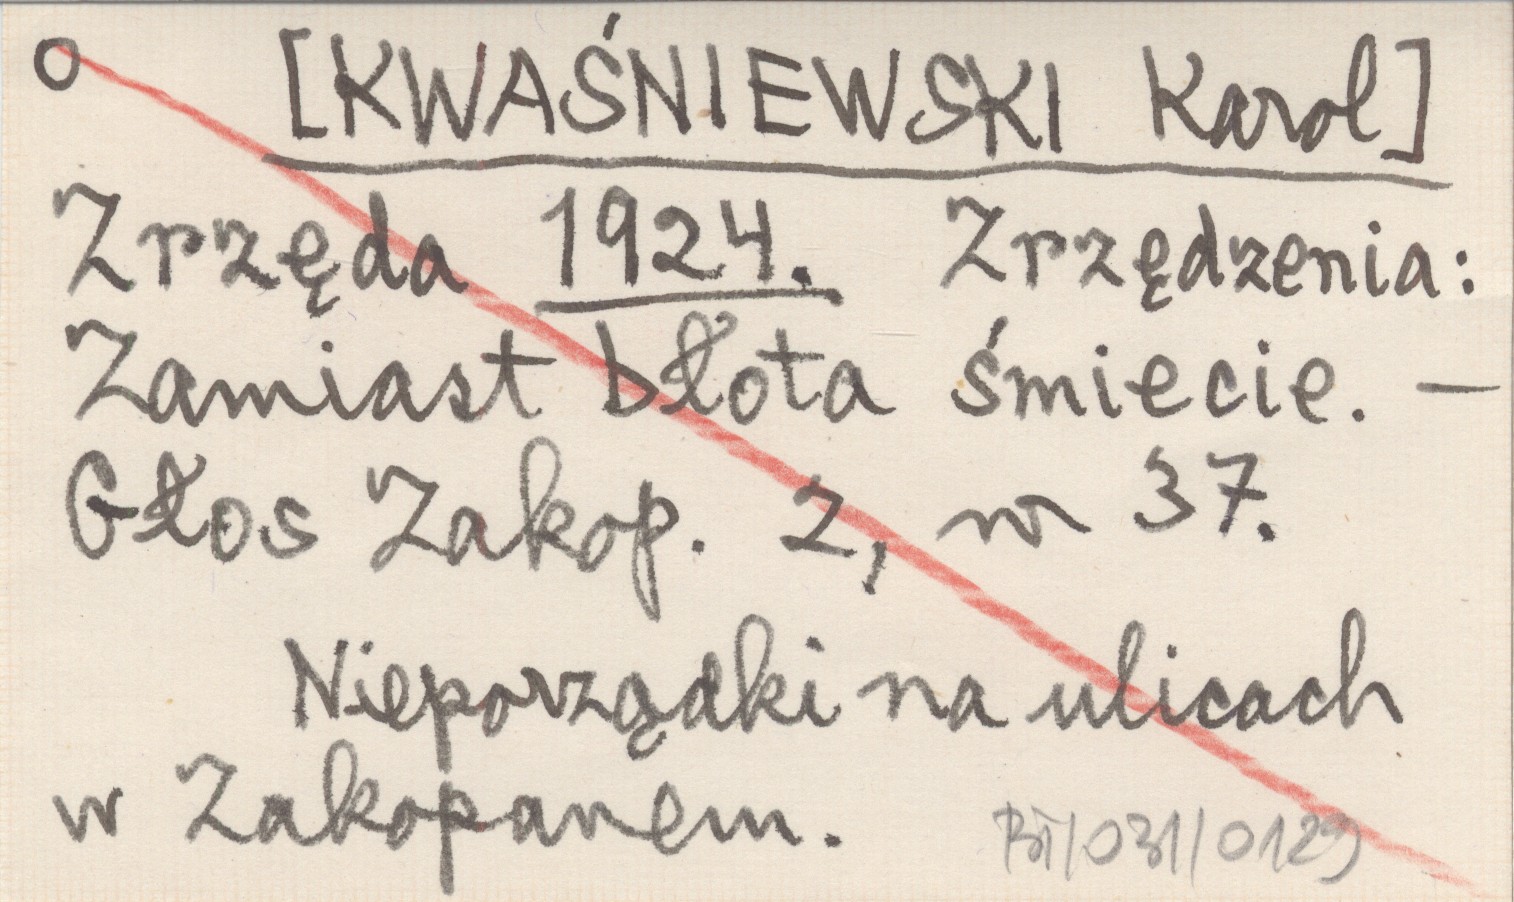 o [KWAŚNIEWSKI Karol]
Zrzęda 1924. Zrzędzenia:
Zamiast błota śmiecie. —
Głos Zakop. 2, nr 37.
Nieporządki na ulicach
w Zakopanem.
/031/0129